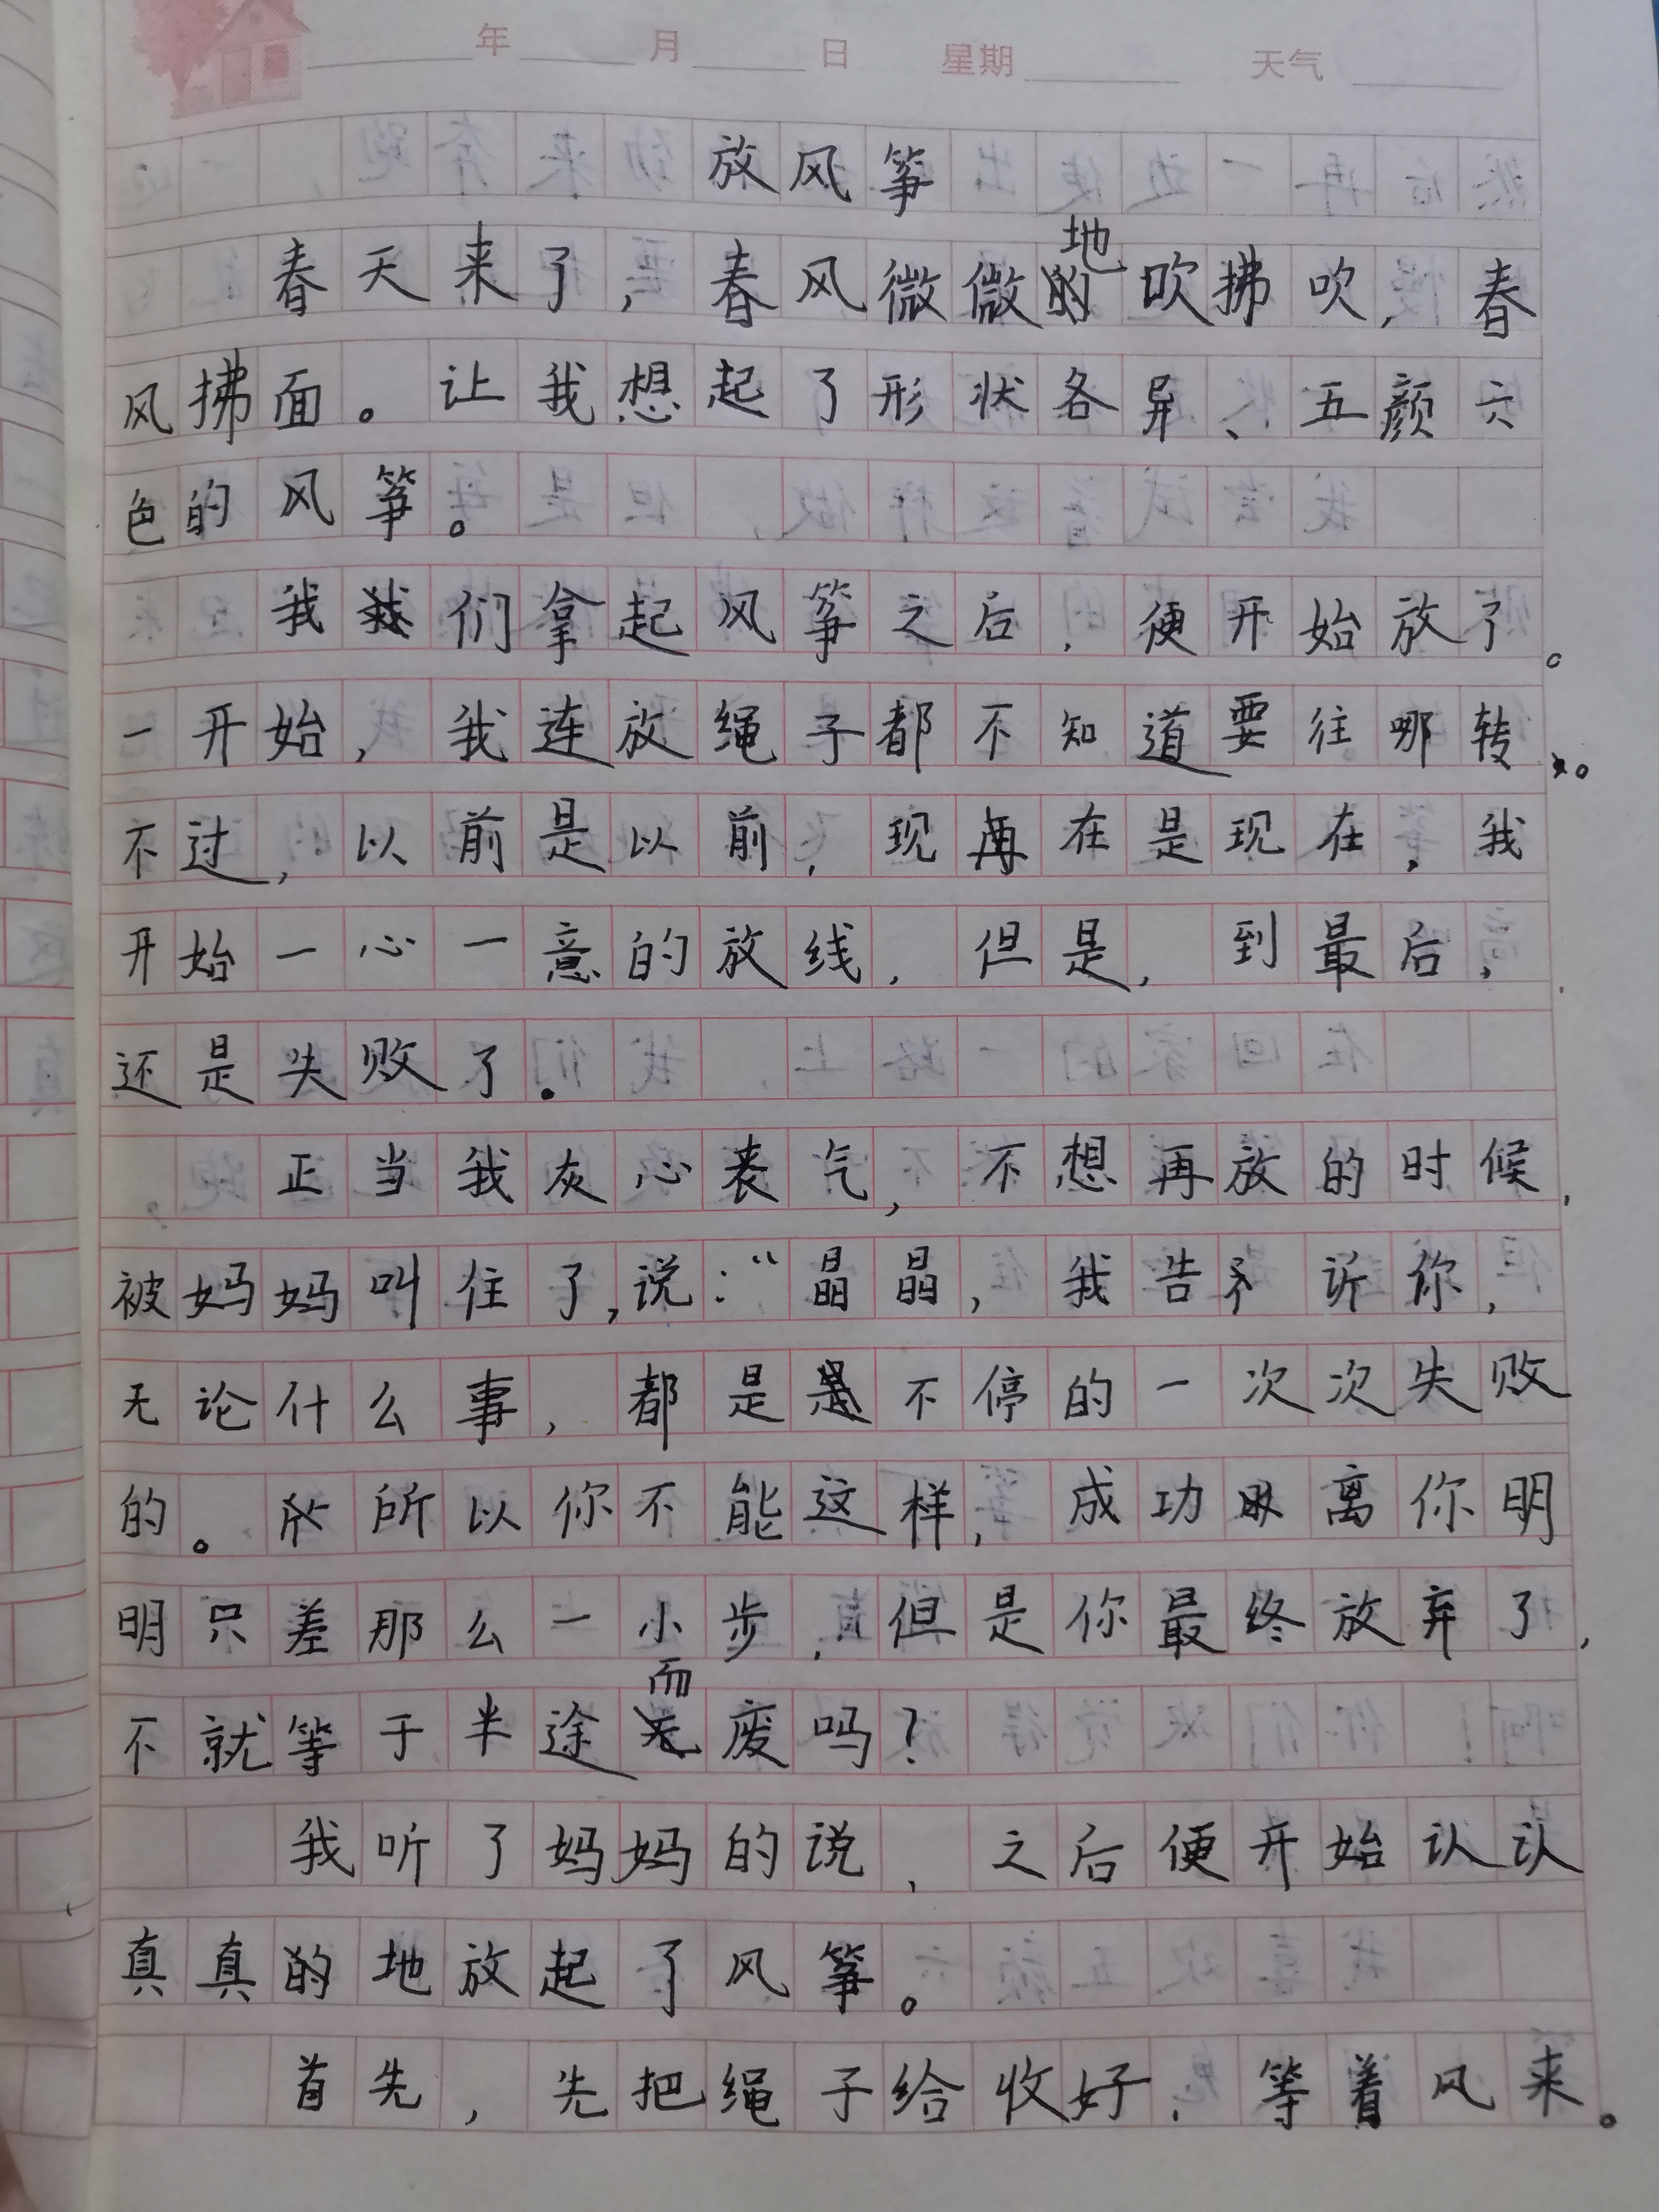 年 月 日 星期 天气
放风筝
春天来了，春风微微地吹拂吹，春
风拂面。让我想起了形状各异、五颜六
色的风筝。
我们拿起风筝之后，便开始放了。
一开始，我连放绳子都不知道要往哪转。
不过，以前是以前，现在是现在，我
开始一心一意的放线，但是，到最后，
还是失败了。
正当我灰心丧气，不想再放的时候，
被妈妈叫住了，说：“晶晶，我告诉你，
无论什么事，都是不停的一次次失败
的。所以你不能这样，成功离你明
明只差那么一小步，但是你最终放弃了，
不就等于半途而废吗？
我听了妈妈的说，之后便开始认认
真真地放起了风筝。
首先，先把绳子给收好，等着风来。